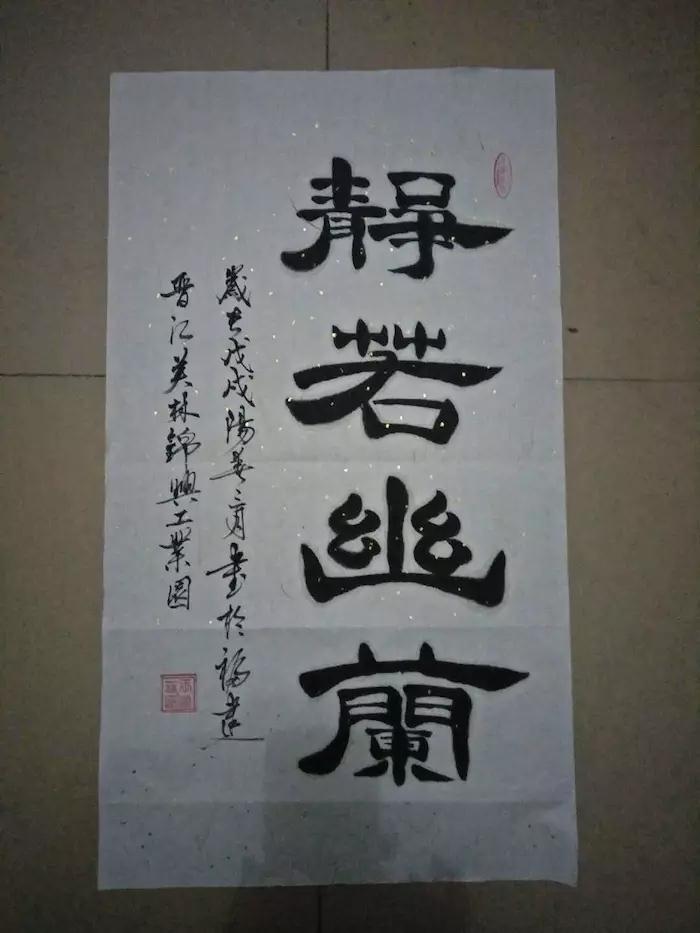 靜若幽蘭
歲在戊戌陽春三月書於福建
晋江美林錦興工業園